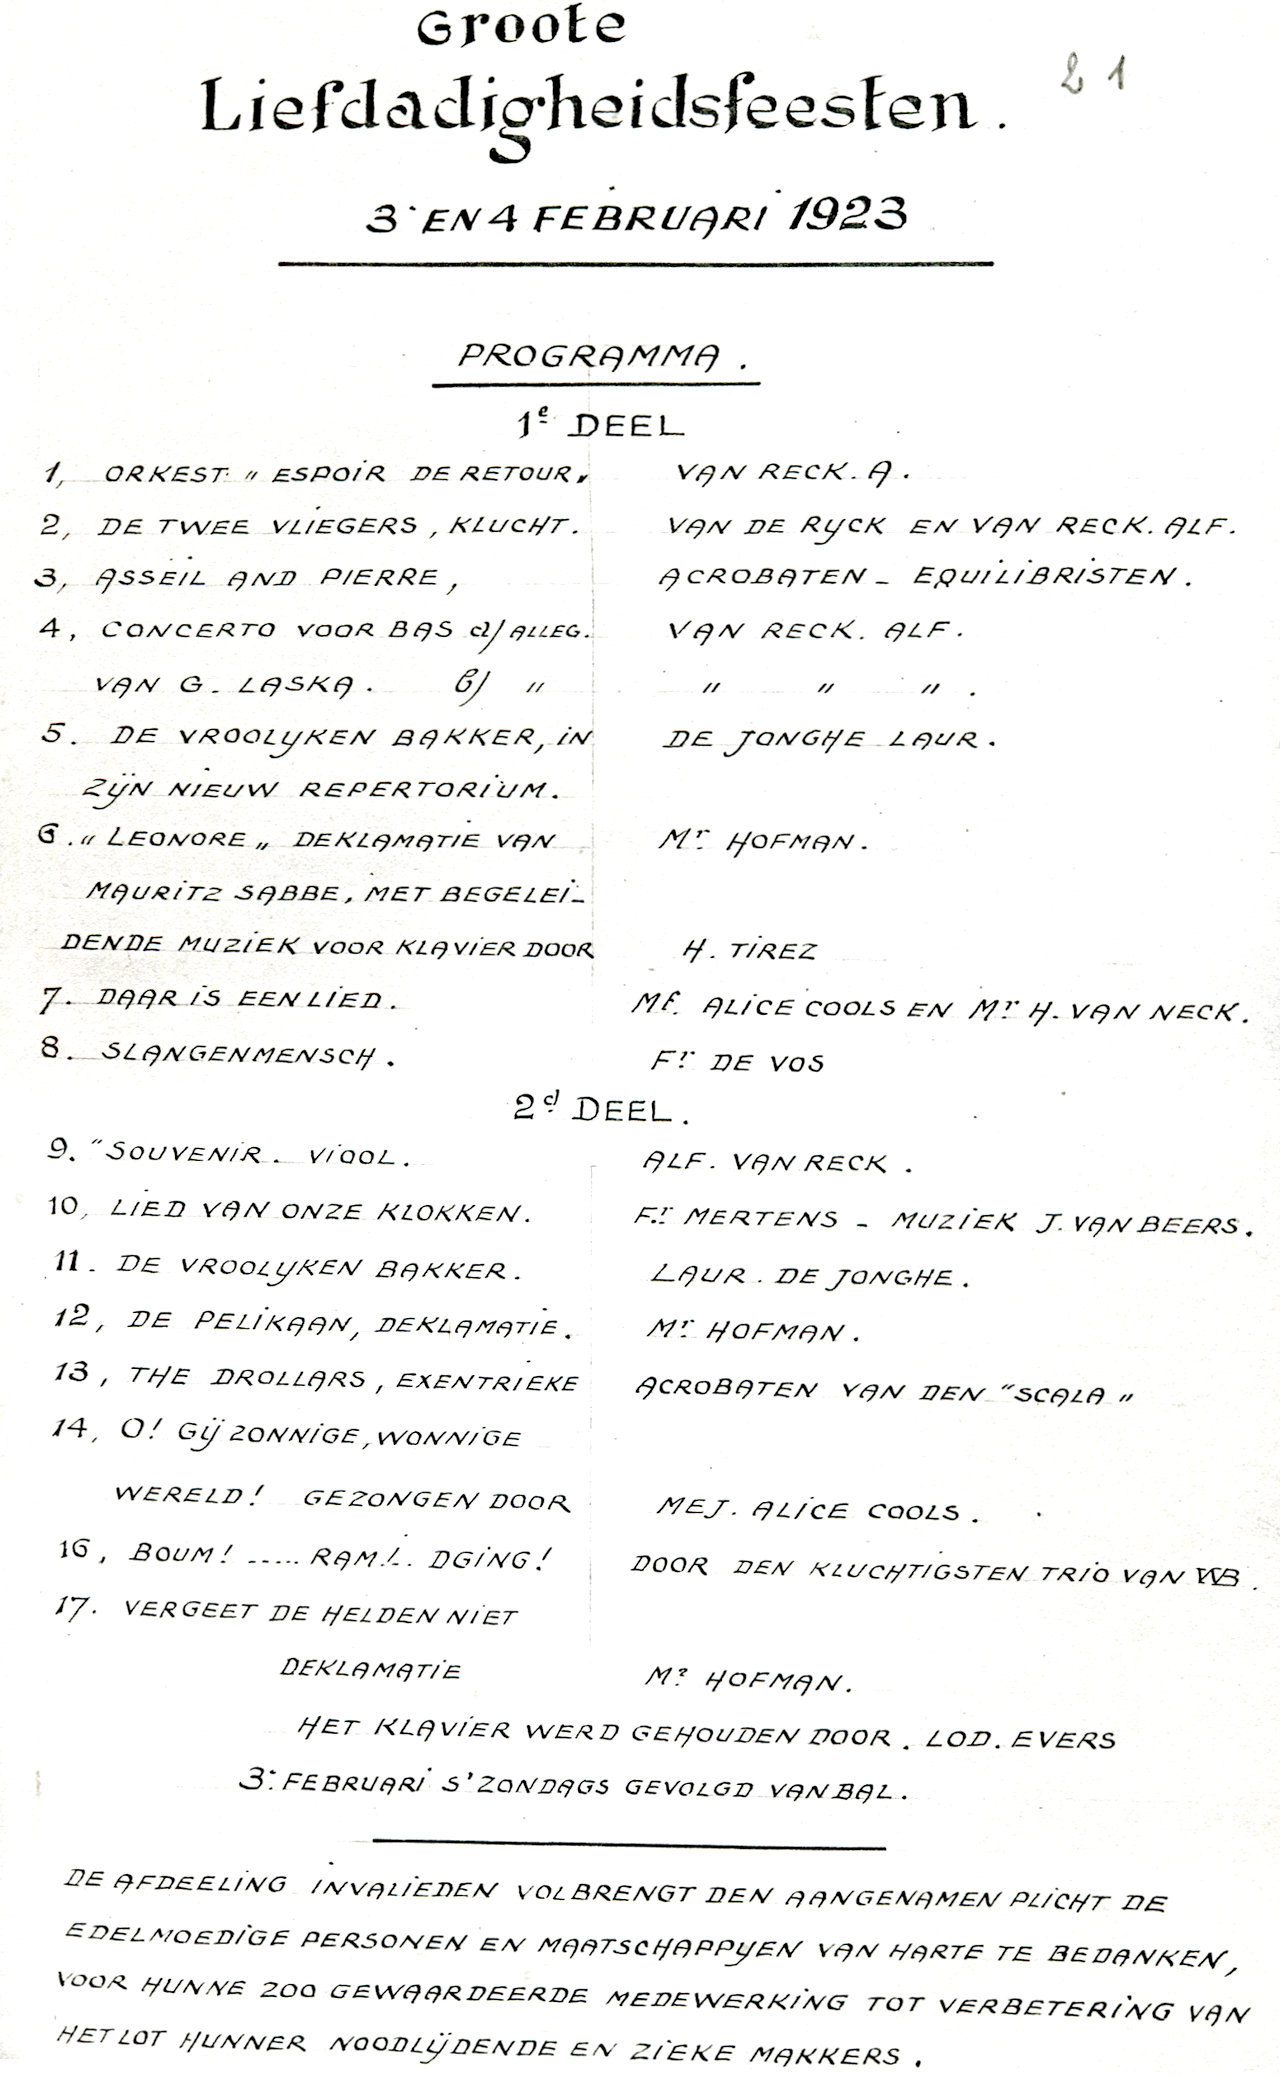 Groote
Liefdadigheidsfeesten.
21
3 EN 4 FEBRUARI 1923
PROGRAMMA.
1e DEEL
1, ORKEST " ESPOIR DE RETOUR " VAN RECK. A.
2, DE TWEE VLIEGERS, KLUCHT. VAN DE RYCK EN VAN RECK. ALF.
3, ASSEIL AND PIERRE, ACROBATEN - EQUILIBRISTEN.
4, CONCERTO VOOR BAS a/ ALLEG. VAN RECK. ALF.
VAN G. LASKA. b/ " " " ".
5. DE VROOLYKEN BAKKER, IN DE JONGHE LAUR.
ZIJN NIEUW REPERTORIUM.
6. " LEONORE " DEKLAMATIE VAN Mr HOFMAN.
MAURITZ SABBE, MET BEGELEI-
DENDE MUZIEK VOOR KLAVIER DOOR H. TIREZ
7. DAAR IS EEN LIED. Me. ALICE COOLS EN Mr H. VAN NECK.
8. SLANGENMENSCH. Fr DE VOS
2d DEEL.
9. "SOUVENIR. VIOOL. ALF. VAN RECK.
10, LIED VAN ONZE KLOKKEN. Fr MERTENS - MUZIEK J. VAN BEERS.
11. DE VROOLYKEN BAKKER. LAUR. DE JONGHE.
12, DE PELIKAAN, DEKLAMATIE. Mr HOFMAN.
13, THE DROLLARS, EXENTRIEKE ACROBATEN VAN DEN "SCALA"
14, O! GIJ ZONNIGE, WONNIGE
WERELD! GEZONGEN DOOR MEJ. ALICE COOLS.
16, BOUM! ..... RAM.!.. DGING! DOOR DEN KLUCHTIGSTEN TRIO VAN WB.
17. VERGEET DE HELDEN NIET
DEKLAMATIE Mr HOFMAN.
HET KLAVIER WERD GEHOUDEN DOOR. LOD. EVERS
3: FEBRUARI S'ZONDAGS GEVOLGD VAN BAL.
DE AFDEELING INVALIEDEN VOLBRENGT DEN AANGENAMEN PLICHT DE
EDELMOEDIGE PERSONEN EN MAATSCHAPPYEN VAN HARTE TE BEDANKEN,
VOOR HUNNE ZOO GEWAARDEERDE MEDEWERKING TOT VERBETERING VAN
HET LOT HUNNER NOODLIJDENDE EN ZIEKE MAKKERS.